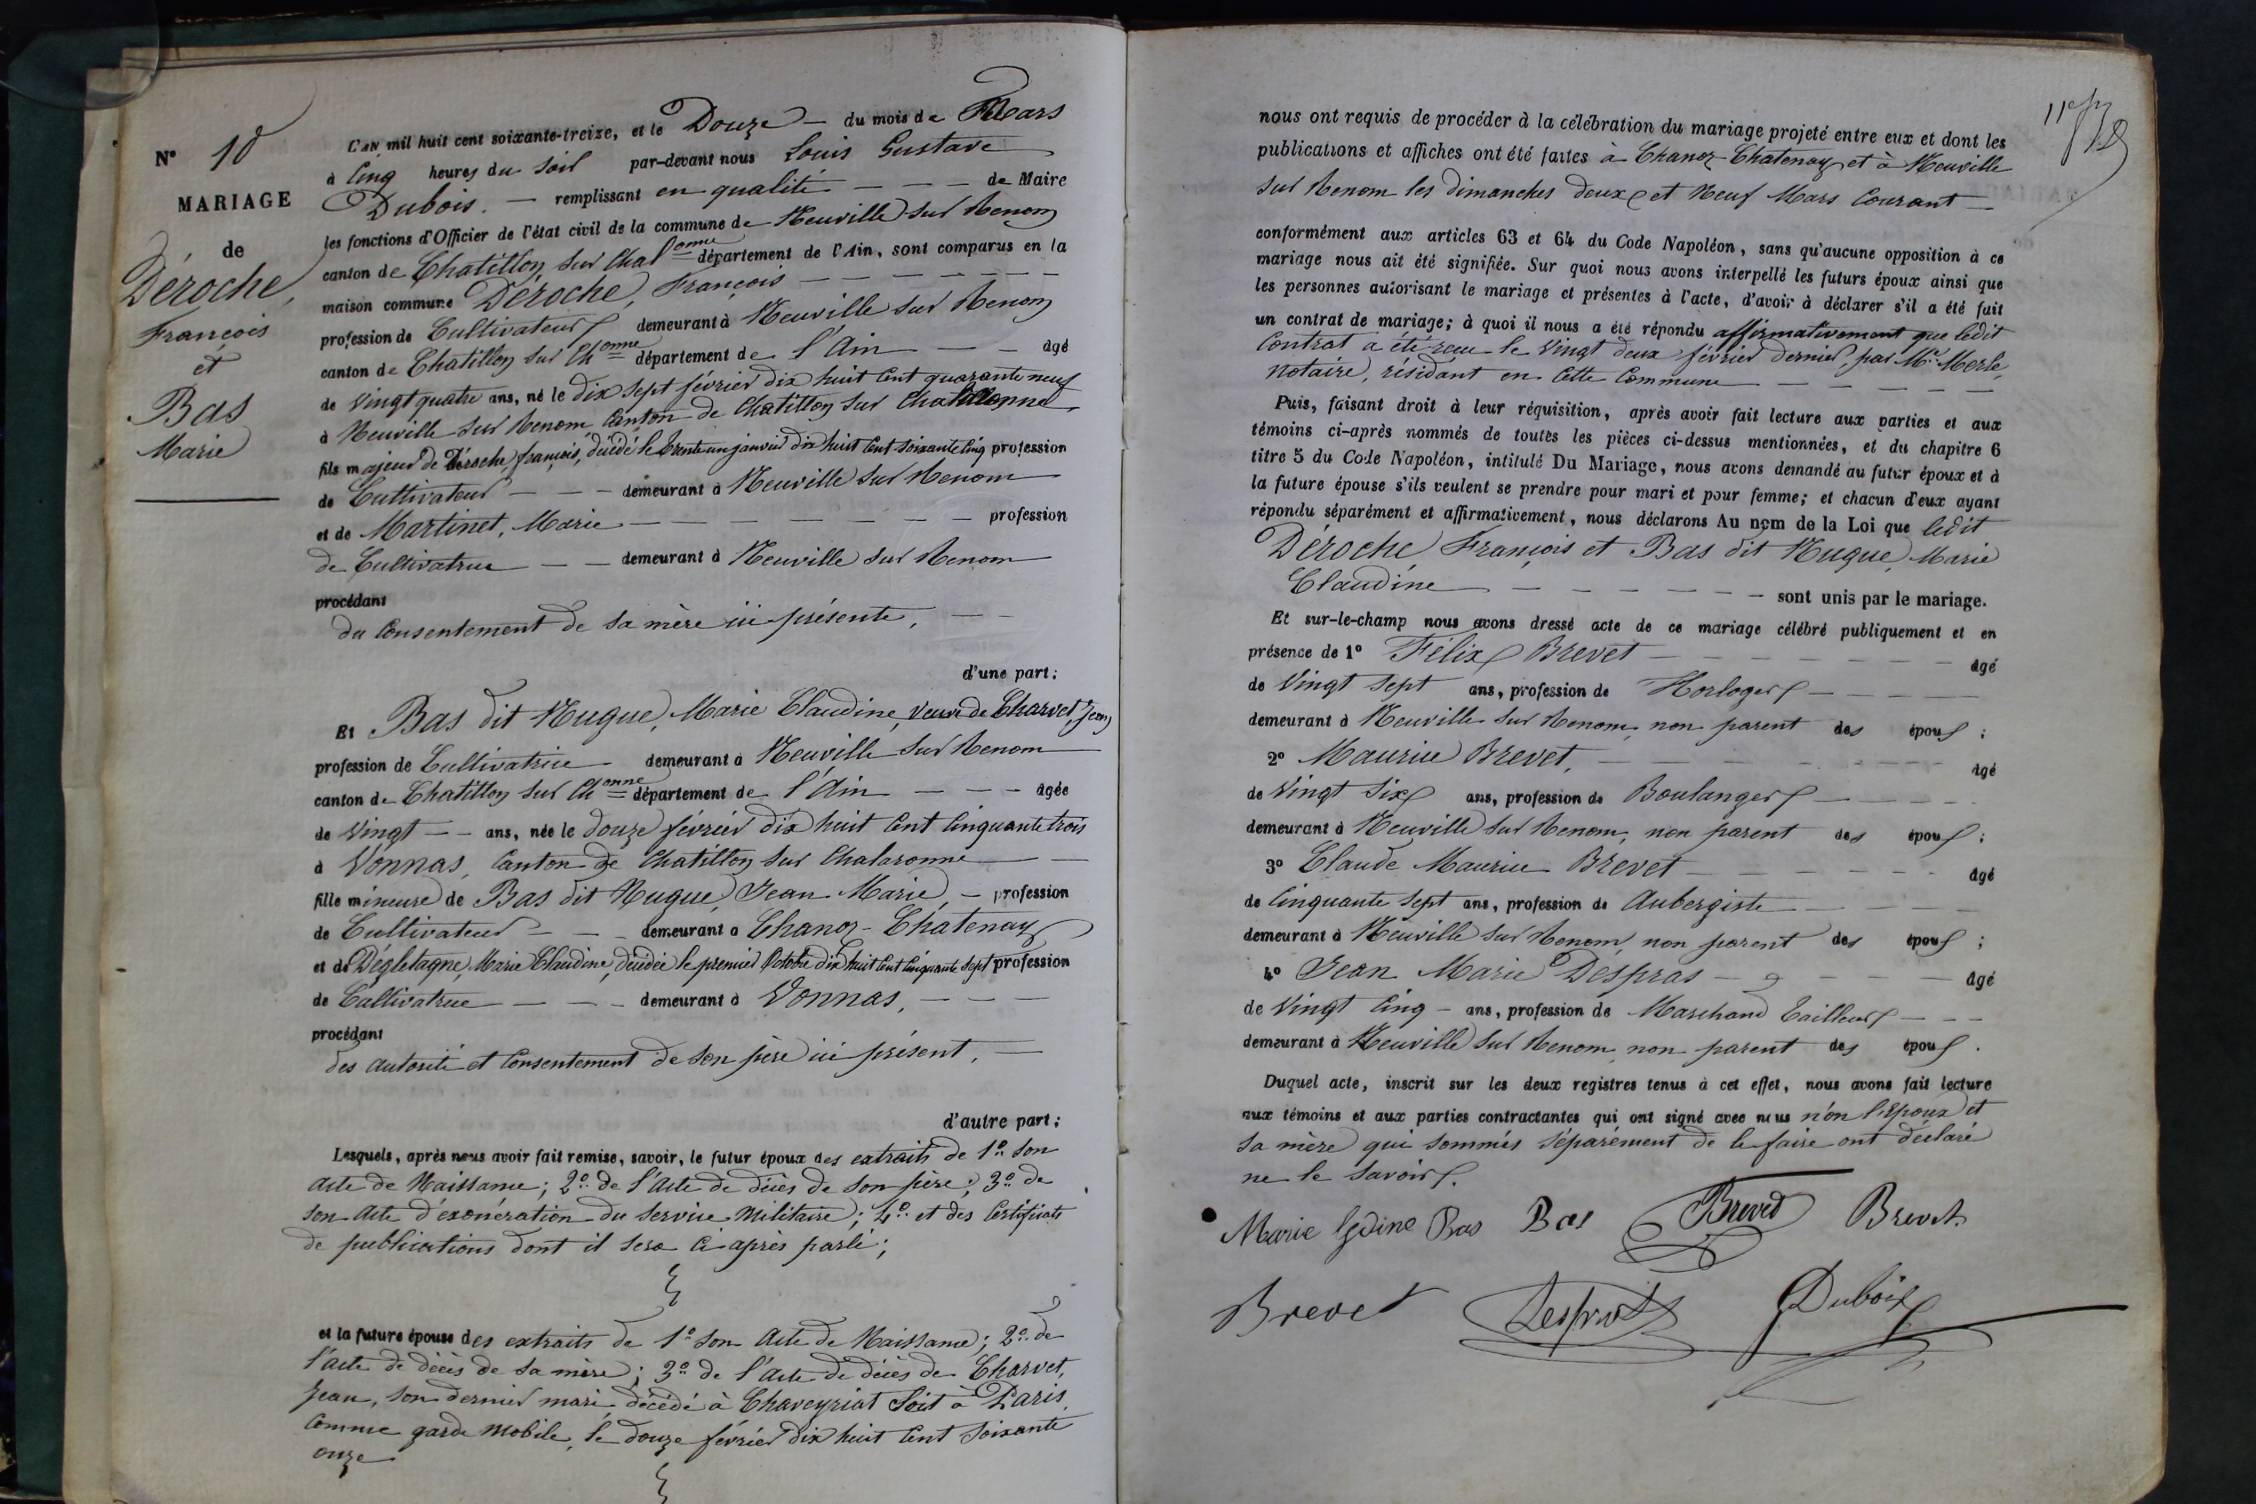 N° 10
MARIAGE
de
Déroche,
François
et
Bas
Marie
L'AN mil huit cent soixante-treize, et le Douze — du mois de Mars
à Cinq heures du soir par-devant nous Louis Gustave
Dubois. — remplissant en qualité — — — de Maire
les fonctions d'Officier de l'état civil de la commune de Neuville sur Renom
canton de Chatillon sur Chalonne département de l'Ain, sont comparus en la
maison commune Déroche, François — — — — — —
profession de Cultivateur demeurant à Neuville sur Renom
canton de Chatillon sur Chonne département de l'Ain — — âgé
de Vingt quatre ans, né le dix sept février dix huit Cent quarante neuf
à Neuville sur Renom, Canton de Chatillon sur Chalaronne,
fils majeur de Déroche, françois, décédé le trente un janvier dix huit Cent soixante Cinq profession
de Cultivateur — — — demeurant à Neuville sur Renom
et de Martinet, Marie — — — — — — — profession
de Cultivatrice — — demeurant à Neuville sur Renom
procédant
du Consentement de sa mère ici présente, —
d'une part;
Et Bas dit Nugue, Marie Claudine, veuve de Charvet, Jean
profession de Cultivatrice demeurant à Neuville sur Renom
canton de Chatillon sur Chonne département de l'Ain — — — âgée
de Vingt — — ans, née le douze février dix huit Cent Cinquante trois
à Vonnas, Canton de Chatillon sur Chalaronne —
fille mineure de Bas dit Nugue, Jean Marie, — profession
de Cultivateur — — demeurant à Chanoz-Chatenay
et de Dégletagne, Marie Claudine, décédée le premier Octobre dix huit Cent Cinquante sept profession
de Cultivatrice — — — demeurant à Vonnas, — — —
procédant
des autorité et Consentement de son père ici présent, —
d'autre part;
Lesquels, après nous avoir fait remise, savoir, le futur époux des extraits de 1° son
acte de Naissance; 2° de l'Acte de décès de son père; 3° de
son acte d'exonération du service Militaire; 4° et des Certificats
de publications dont il sera Ci-après parlé;
et la future épouse des extraits de 1° son Acte de Naissance; 2° de
l'acte de décès de sa mère; 3° de l'Acte de décès de Charvet,
Jean, son dernier mari, décédé à Chaveyriat Soit à Paris,
Comme garde Mobile, le douze février dix huit Cent Soixante
onze
nous ont requis de procéder à la célébration du mariage projeté entre eux et dont les
publications et affiches ont été faites à Chanoz-Chatenay et à Neuville
sur Renom les dimanches deux et Neuf Mars Courant —
conformément aux articles 63 et 64 du Code Napoléon, sans qu'aucune opposition à ce
mariage nous ait été signifiée. Sur quoi nous avons interpellé les futurs époux ainsi que
les personnes autorisant le mariage et présentes à l'acte, d'avoir à déclarer s'il a été fait
un contrat de mariage; à quoi il nous a été répondu affirmativement que ledit
Contrat a été reçu le Vingt deux février dernier, par Me Merle,
Notaire, résidant en Cette Commune — — — —
Puis, faisant droit à leur réquisition, après avoir fait lecture aux parties et aux
témoins ci-après nommés de toutes les pièces ci-dessus mentionnées, et du chapitre 6
titre 5 du Code Napoléon, intitulé Du Mariage, nous avons demandé au futur époux et à
la future épouse s'ils veulent se prendre pour mari et pour femme; et chacun d'eux ayant
répondu séparément et affirmativement, nous déclarons Au nom de la Loi que ledit
Déroche, François et Bas dit Nugue, Marie
Claudine — — — — — — — sont unis par le mariage.
Et sur-le-champ nous avons dressé acte de ce mariage célébré publiquement et en
présence de 1° Félix Brevet — — — — — — — âgé
de Vingt sept ans, profession de Horloger — — — —
demeurant à Neuville sur Renom, non parent des époux;
2° Maurice Brevet, — — — — — — — âgé
de Vingt Six ans, profession de Boulanger — — — —
demeurant à Neuville sur Renom, non parent des époux;
3° Claude Maurice Brevet — — — — — — âgé
de Cinquante sept ans, profession de Aubergiste — — — —
demeurant à Neuville sur Renom, non parent des époux;
4° Jean Marie Déspras — — — — — âgé
de Vingt Cinq — ans, profession de Marchand Tailleur — — —
demeurant à Neuville sur Renom, non parent des époux.
Duquel acte, inscrit sur les deux registres tenus à cet effet, nous avons fait lecture
aux témoins et aux parties contractantes qui ont signé avec nous non l'Epoux et
sa mère qui sommés séparément de le faire ont déclaré
ne le savoir.
Marie Gdine Bas Bas Brevet Brevet
Brevet Despras Dubois